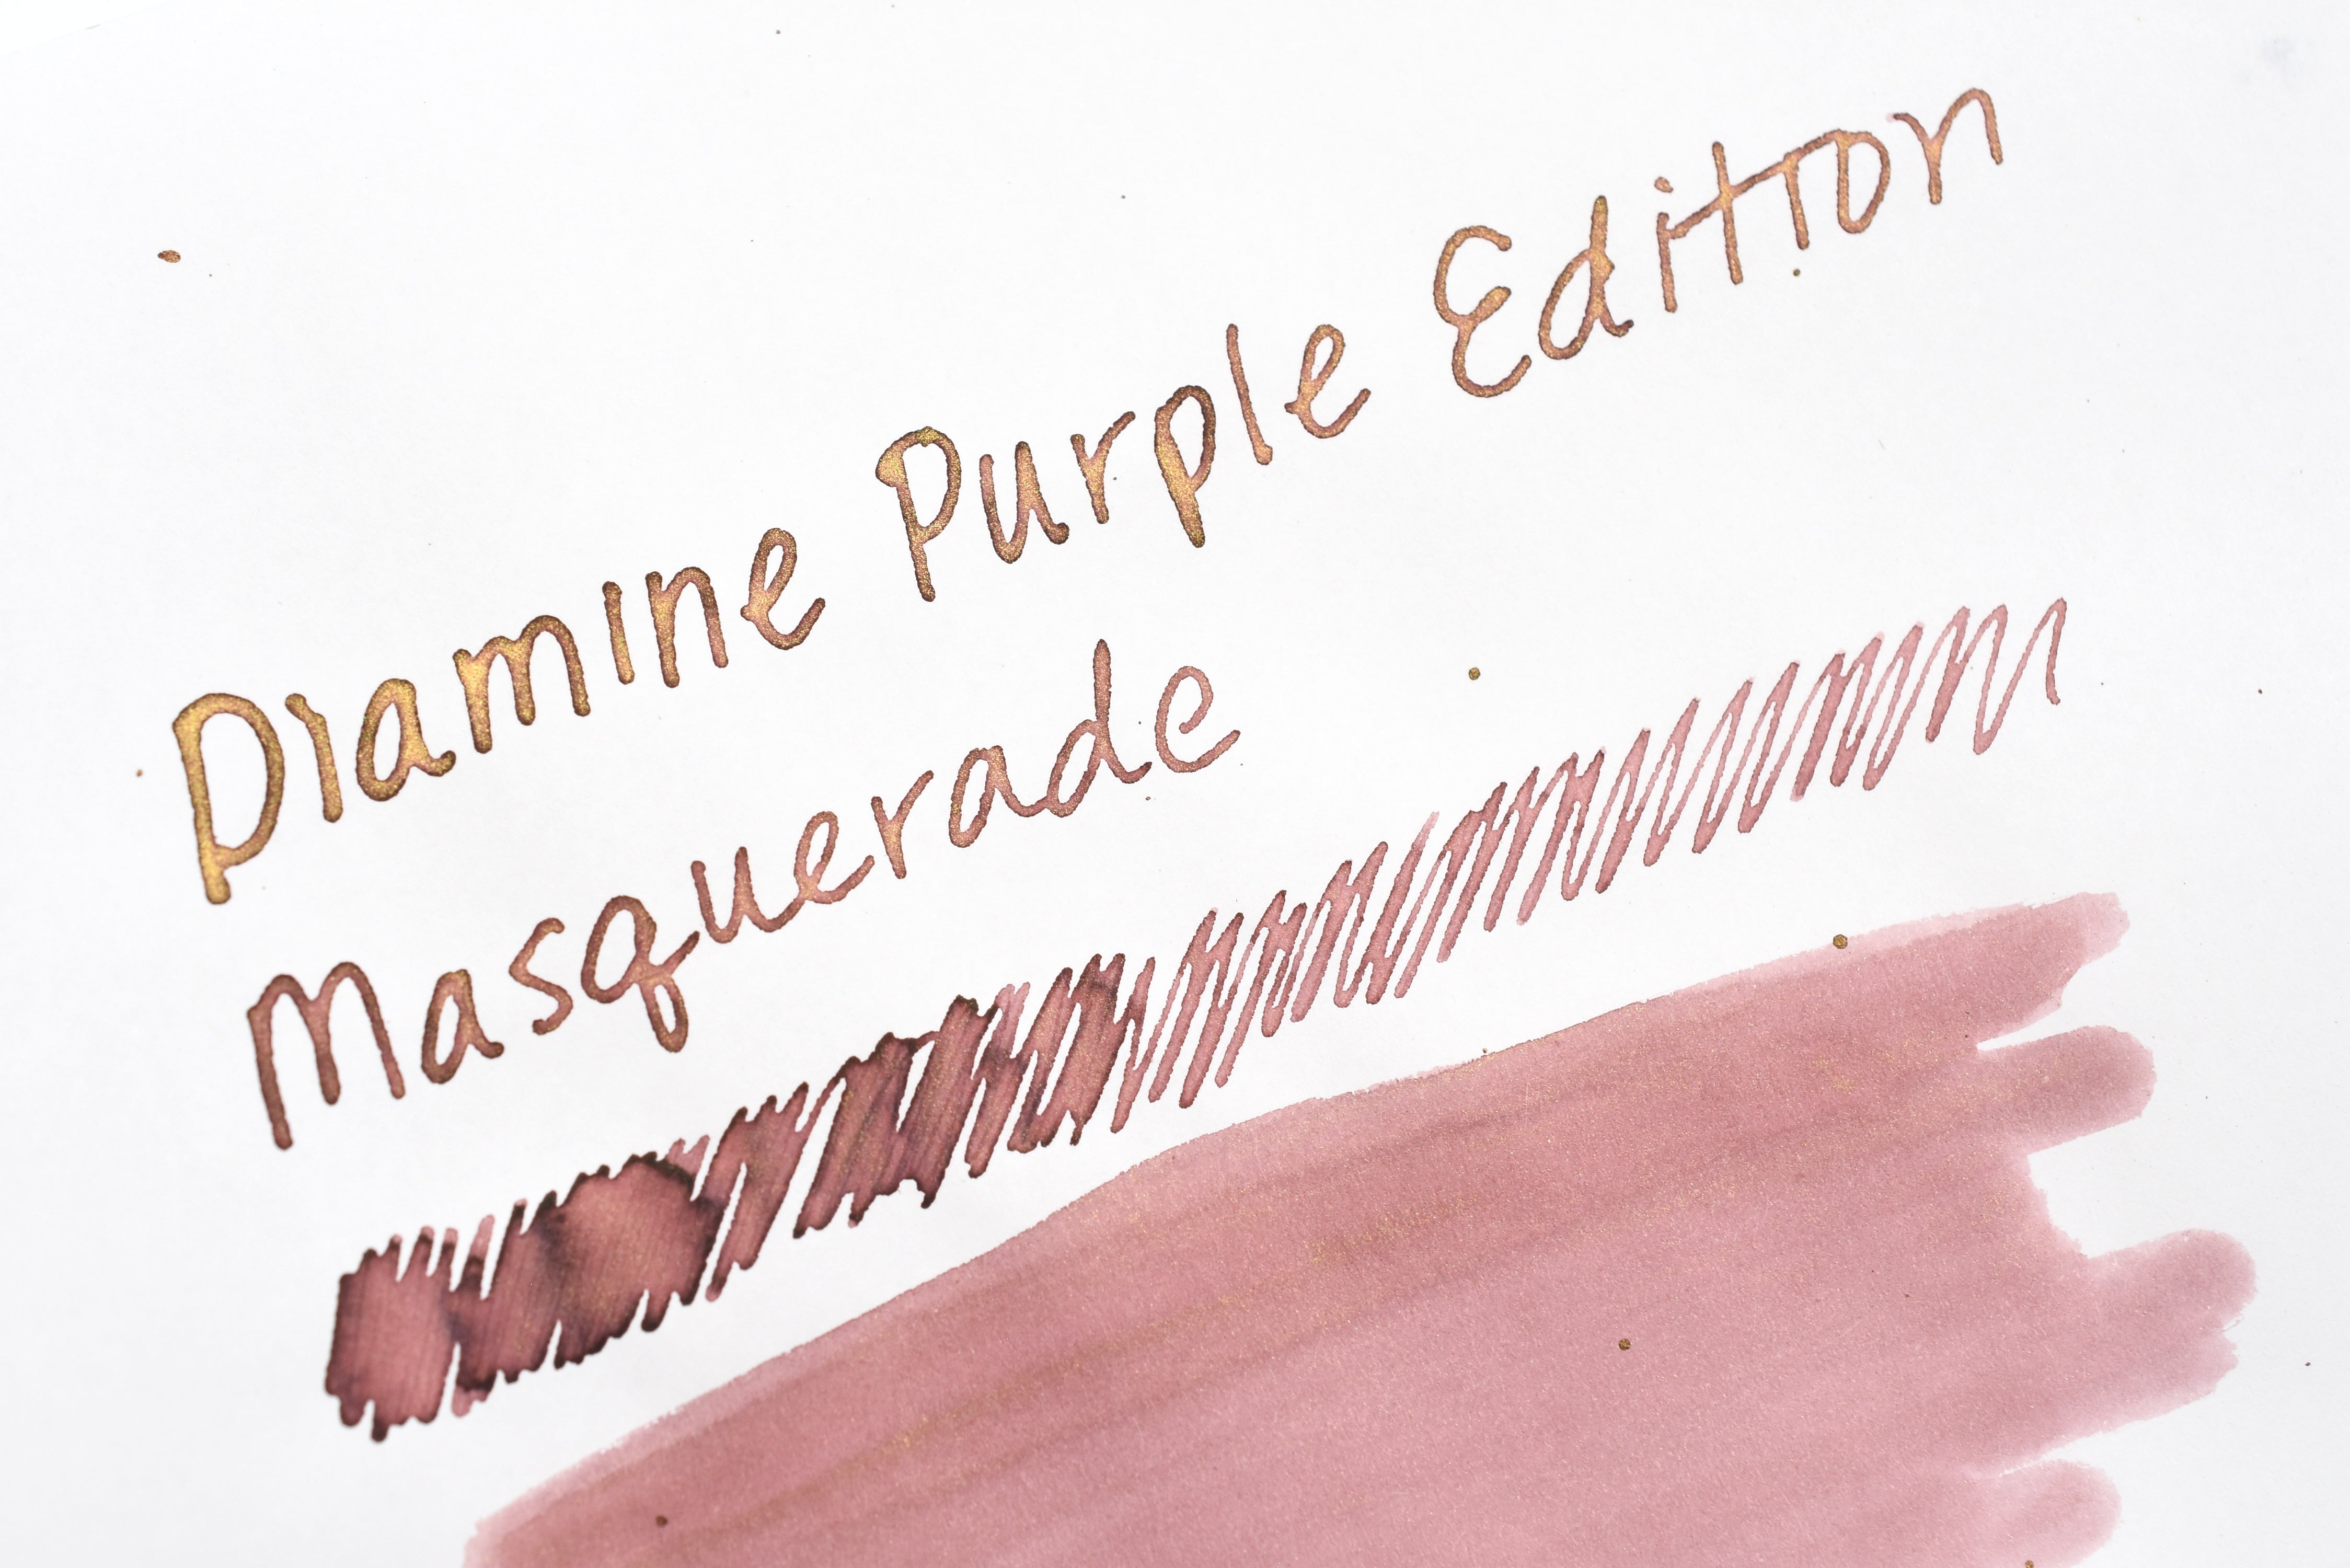 Diamine Purple Edition
Masquerade